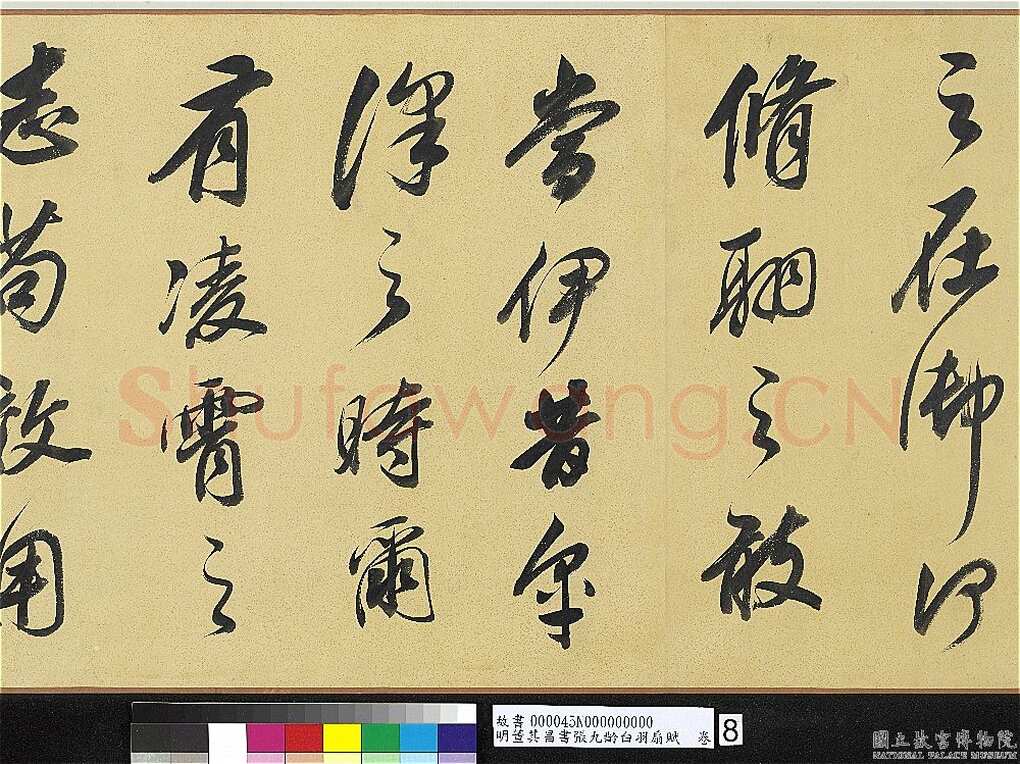 之在御何
脩翮之敢
當伊昔皋
澤之時爾
有凌霄之
志苟效用
Shufawang.CN
故書 000043N000000000
明董其昌書張九齡白羽扇賦 卷
8
國立故宮博物院
NATIONAL PALACE MUSEUM